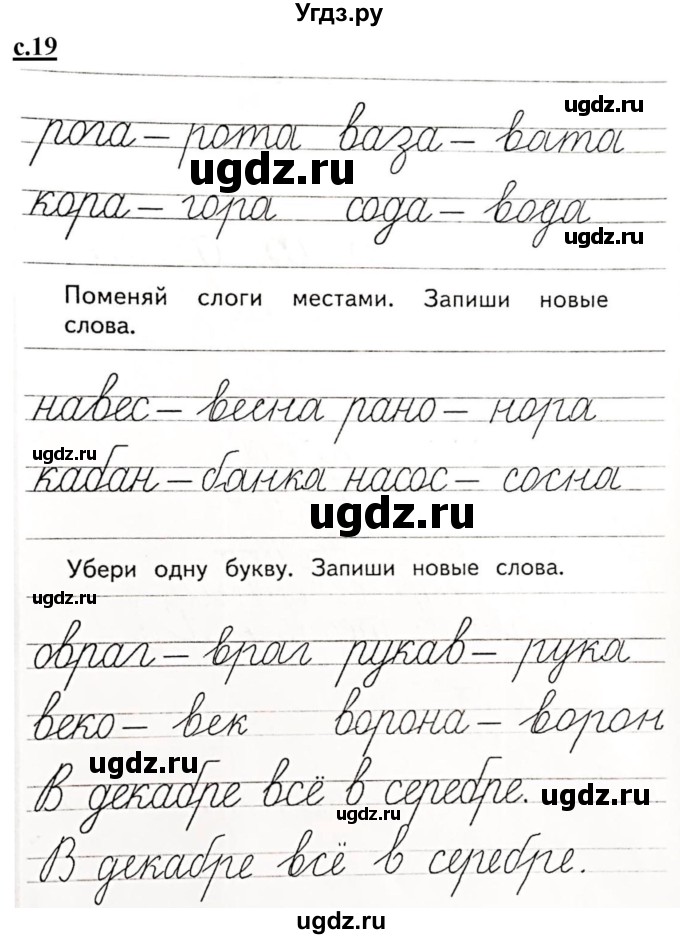 Угдз.ру
с.19
ugdz.ru
рога – рота ваза – вата
ugdz.ru
кора – гора сода – вода
ugdz.ru
Поменяй слоги местами. Запиши новые
слова.
навес – весна рано – нора
ugdz.ru
кабан – банка насос – сосна
ugdz.ru
Убери одну букву. Запиши новые слова.
ugdz.ru
овраг – враг рукав – рука
веко – век ворона – ворон
ugdz.ru
В декабре всё в серебре.
ugdz.ru
В декабре всё в серебре.
ugdz.ru